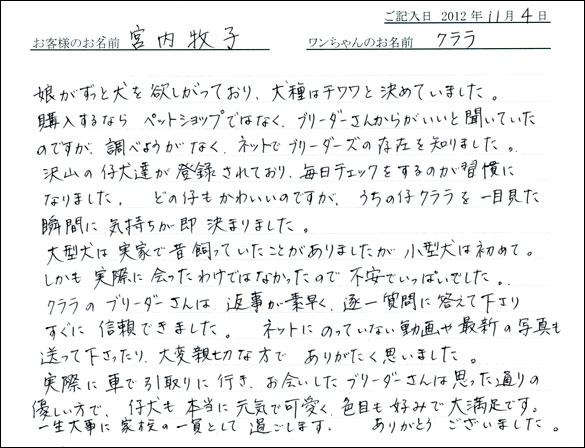 ご記入日 2012 年 11 月 4 日
お客様のお名前 宮内牧子 ワンちゃんのお名前 クララ
娘がずっと犬を欲しがっており、犬種はチワワと決めていました。
購入するなら ペットショップではなく、ブリーダーさんからがいいと聞いていた
のですが、調べようがなく、ネットでブリーダーズの存在を知りました。
沢山の仔犬達が登録されており、毎日チェックをするのが習慣に
なりました。 どの仔もかわいいのですが、うちの仔クララを一目見た
瞬間に気持ちが即決まりました。
大型犬は実家で昔飼っていたことがありましたが小型犬は初めて。
しかも実際に会ったわけではなかったので不安でいっぱいでした。
クララのブリーダーさんは、返事が素早く、逐一質問に答えて下さり
すぐに信頼できました。 ネットにのっていない動画や最新の写真も
送って下さったり、大変親切な方で ありがたく思いました。
実際に車で引取りに行き、お会いしたブリーダーさんは思った通りの
優しい方で、仔犬も本当に元気で可愛く、色目も好みで大満足です。
一生大事に家族の一員として過ごします。 ありがとうございました。